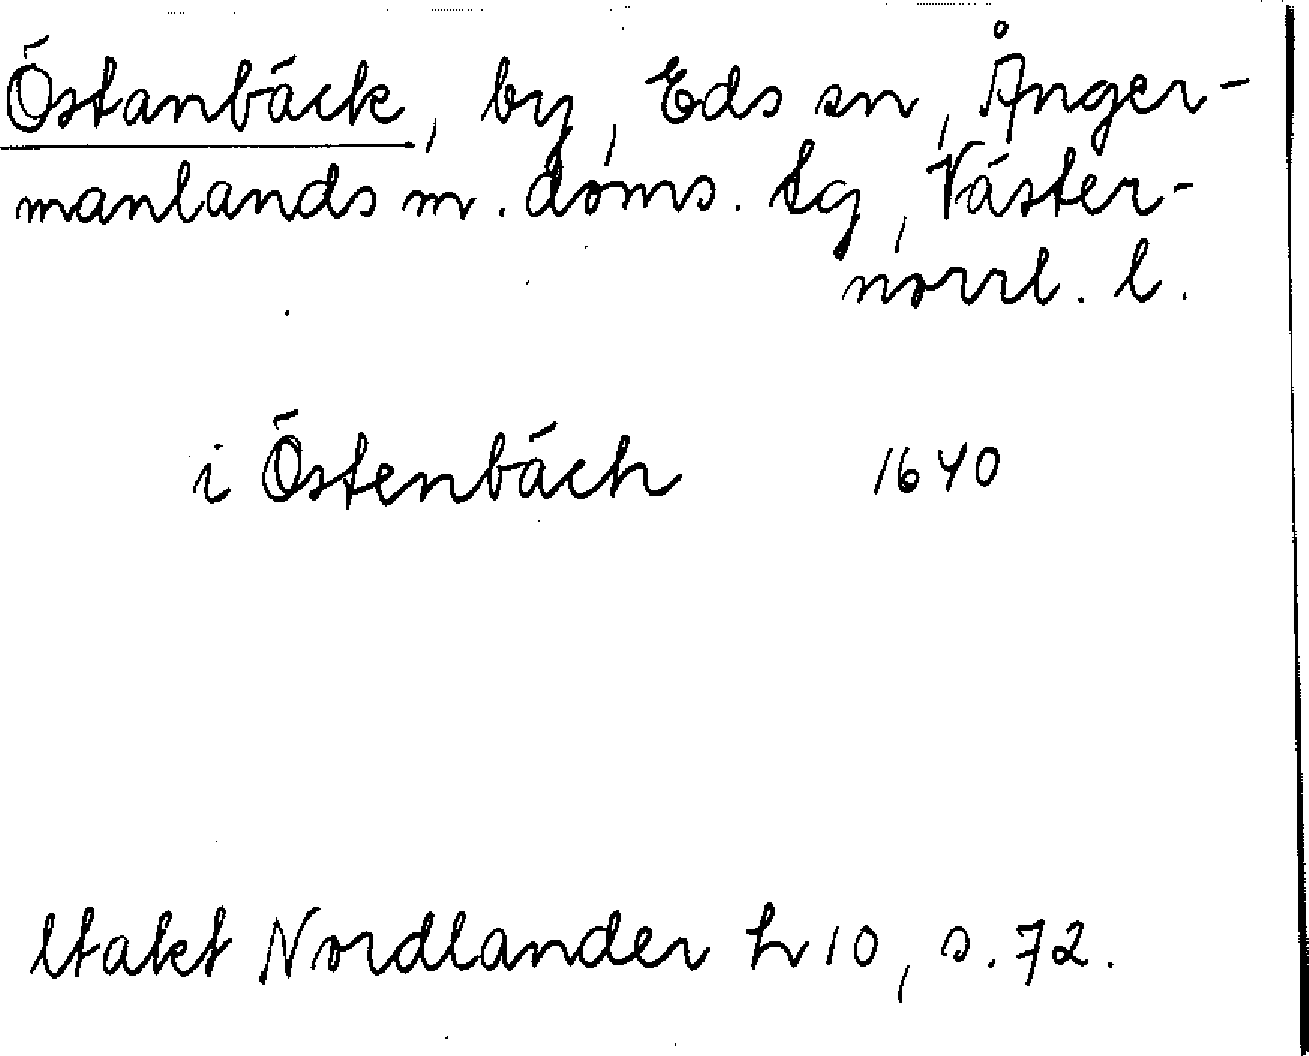 Östanbäck, by, Eds sn, Ånger-
manlands m. doms. tg, Väster-
norrl. l.
i Östenbäch 1640
Utakt Nordlander h 10, s. 72.